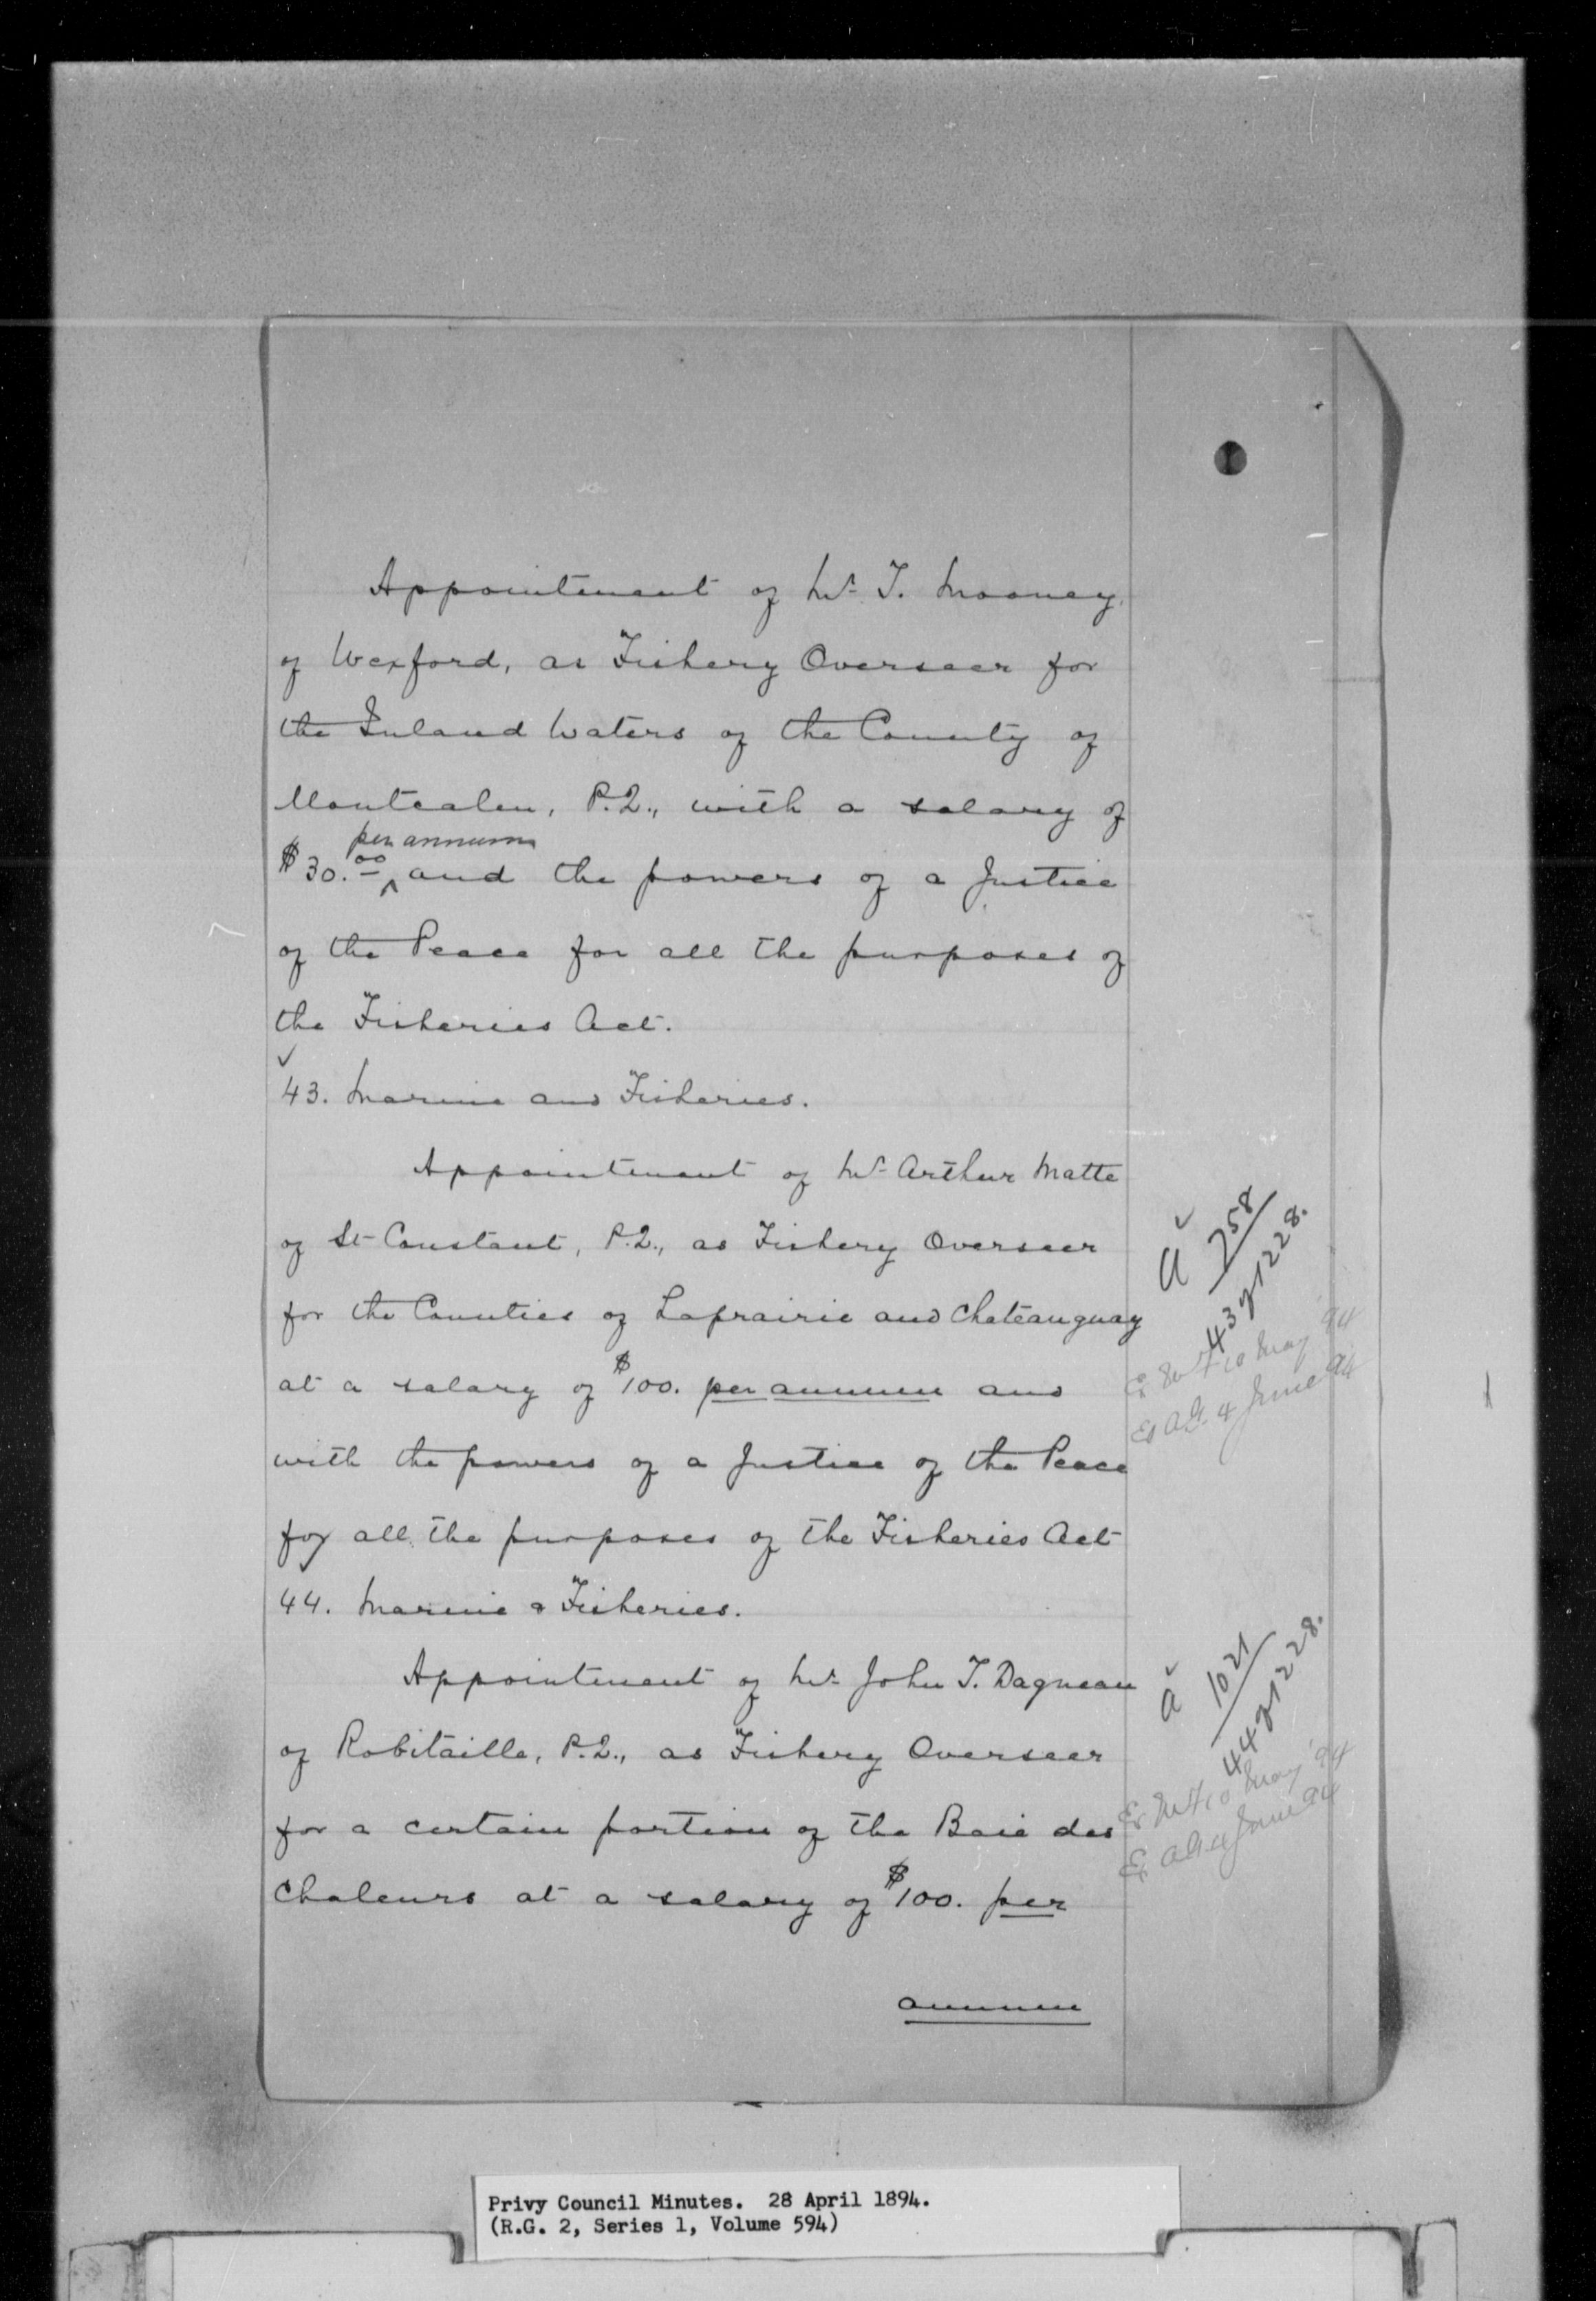 Appointment of Mr. T. Mooney,
of Wexford, as Fishery Overseer for
the Inland Waters of the County of
Montcalm, P.Q., with a salary of
per annum
$30.00 ^ and the powers of a Justice
of the Peace for all the purposes of
the Fisheries Act.
43. Marine and Fisheries.
Appointment of Mr. Arthur Matte
of St Constant, P.Q., as Fishery Overseer
for the Counties of Laprairie and Chateauguay
at a salary of $100. per annum and
with the powers of a Justice of the Peace
for all the purposes of the Fisheries Act
a 758
43 of 1228.
10 May '94
4 June 94
44. Marine & Fisheries.
Appointment of Mr. John T. Dagneau
of Robitaille, P.Q., as Fishery Overseer
for a certain portion of the Baie des
Chaleurs at a salary of $100. per
annum
a 1021
44 of 1228.
10 May '94
4 June 94
Privy Council Minutes. 28 April 1894.
(R.G. 2, Series 1, Volume 594)